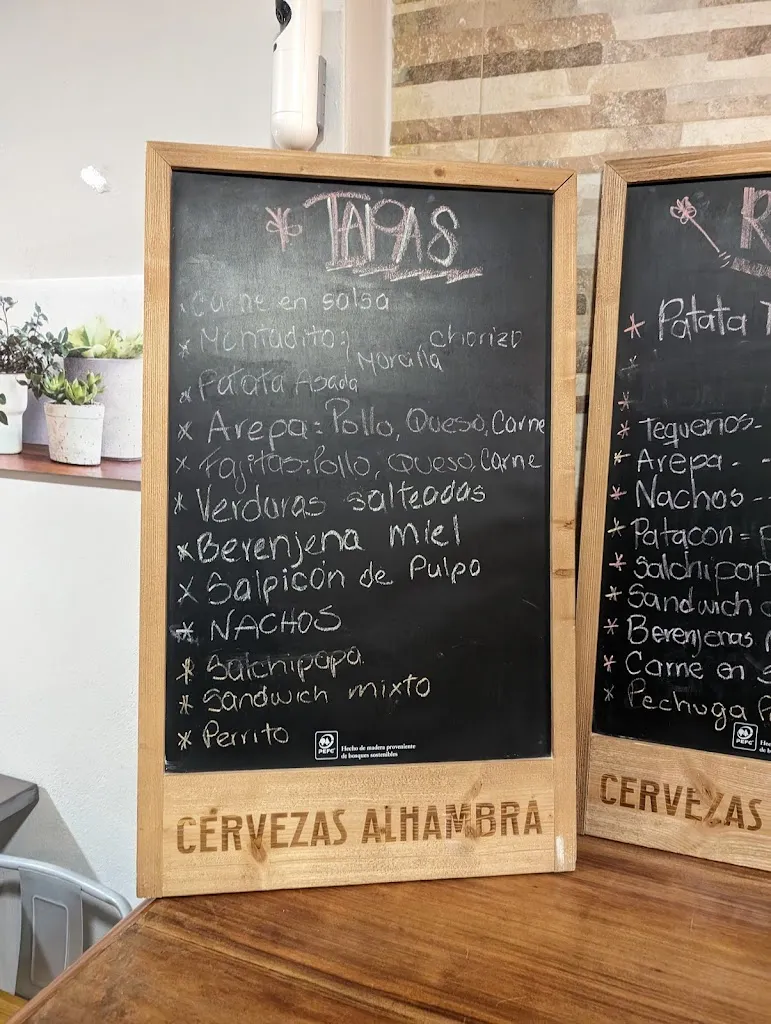 TAPAS
Carne en salsa
Montadito: chorizo
Morcilla
Patata Asada
Arepa: Pollo, Queso, Carne
Fajitas: Pollo, Queso, Carne
Verduras salteadas
Berenjena miel
Salpicón de Pulpo
NACHOS
Salchipapa
Sandwich mixto
Perrito
PEFC
Hecho de madera proveniente
de bosques sostenibles
CERVEZAS ALHAMBRA
R
Patata
Tequeños-
Arepa - -
Nachos --
Patacon =
Salchipap
Sandwich
Berenjenas
Carne en S
Pechuga
PEFC
CERVEZAS